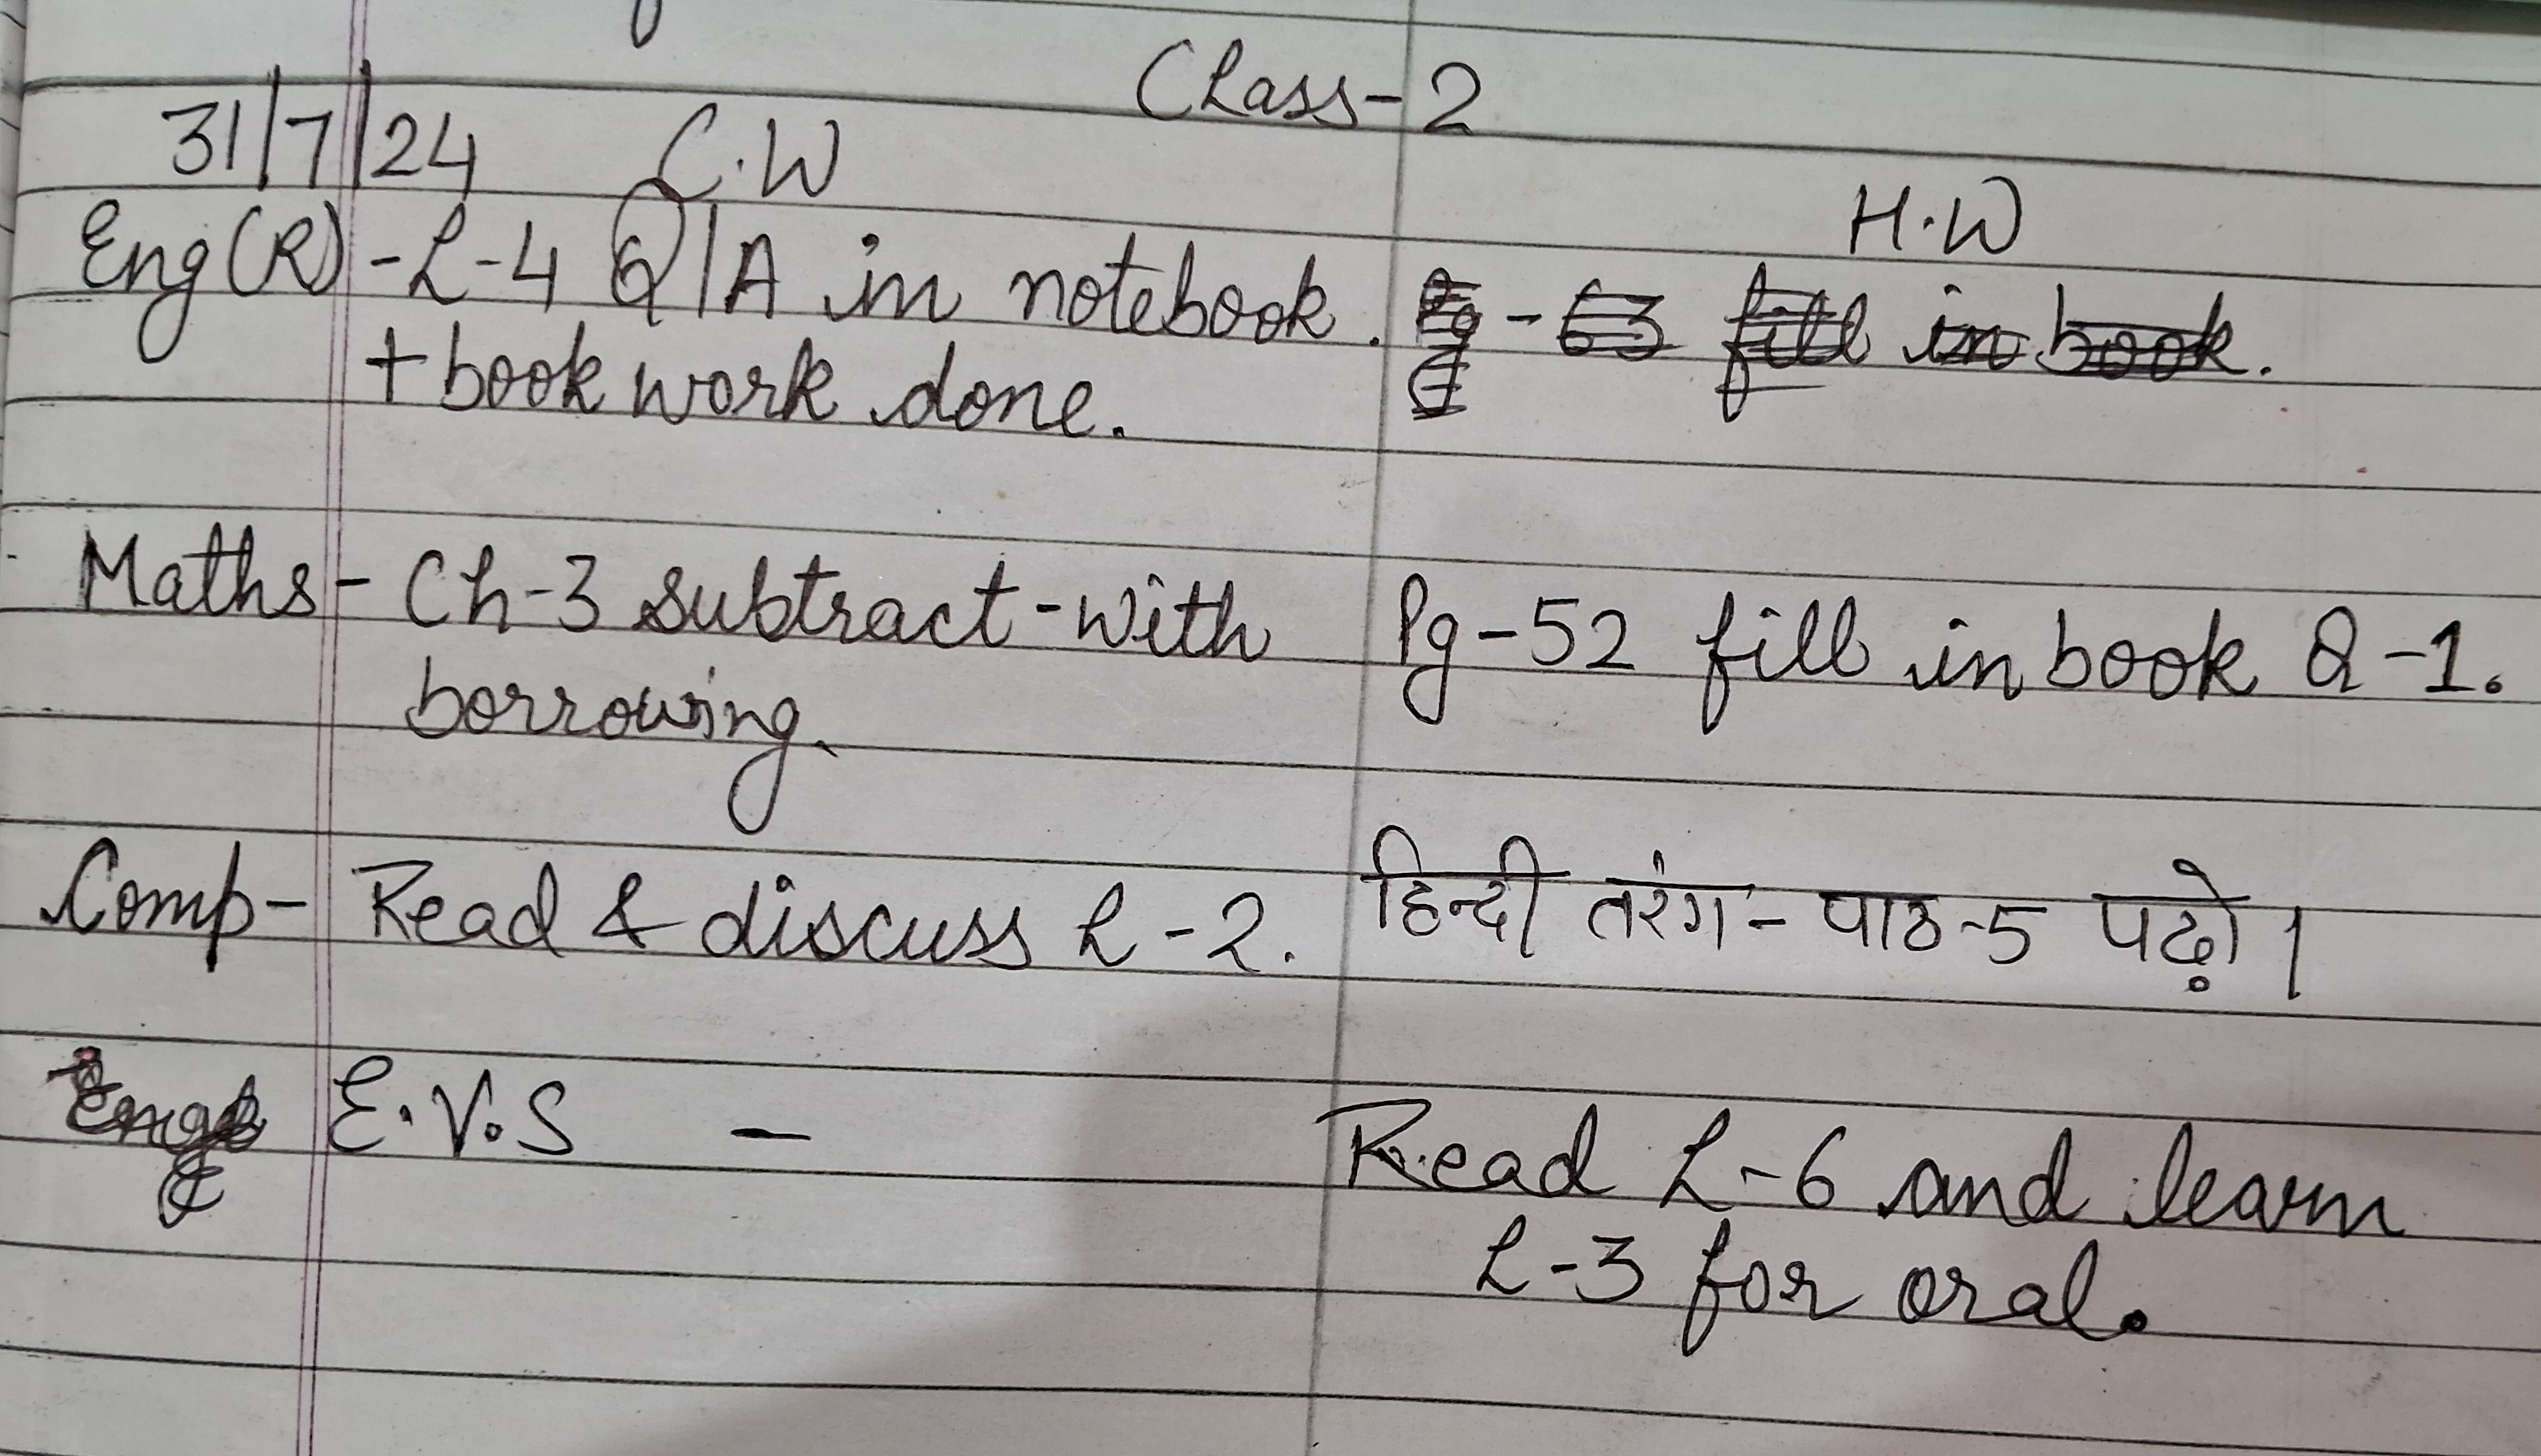 Class-2
31/7/24 C.W
H.W
Eng(R)-L-4 Q/A in notebook. Pg - 63 fill in book.
+ book work done.
Maths - Ch-3 subtract-with Pg-52 fill in book Q-1.
borrowing.
Comp- Read & discuss L-2. हिन्दी तरंग- पाठ-5 पढ़ो।
E.V.S — Read L-6 and learn
L-3 for oral.